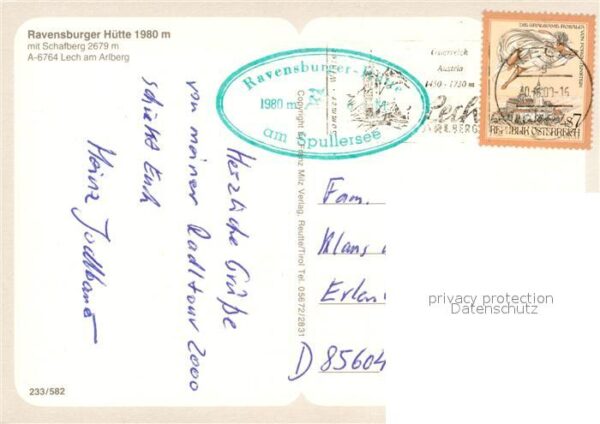 Ravensburger Hütte 1980 m
mit Schafberg 2679 m
A-6764 Lech am Arlberg
Herzliche Grüße
von meiner Radltour 2000
schickt Euch
Heinz
233/582
Ravensburger-Hütte
1980 m
am Spullersee
Österreich
Austria
1450 - 1730 m
Lech
ARLBERG
REPUBLIK ÖSTERREICH
S7
Copyright by Franz Milz Verlag, Reutte/Tirol Tel. 05672/2831
Fam.
Klaus
Erlen
D 85604
privacy protection
Datenschutz